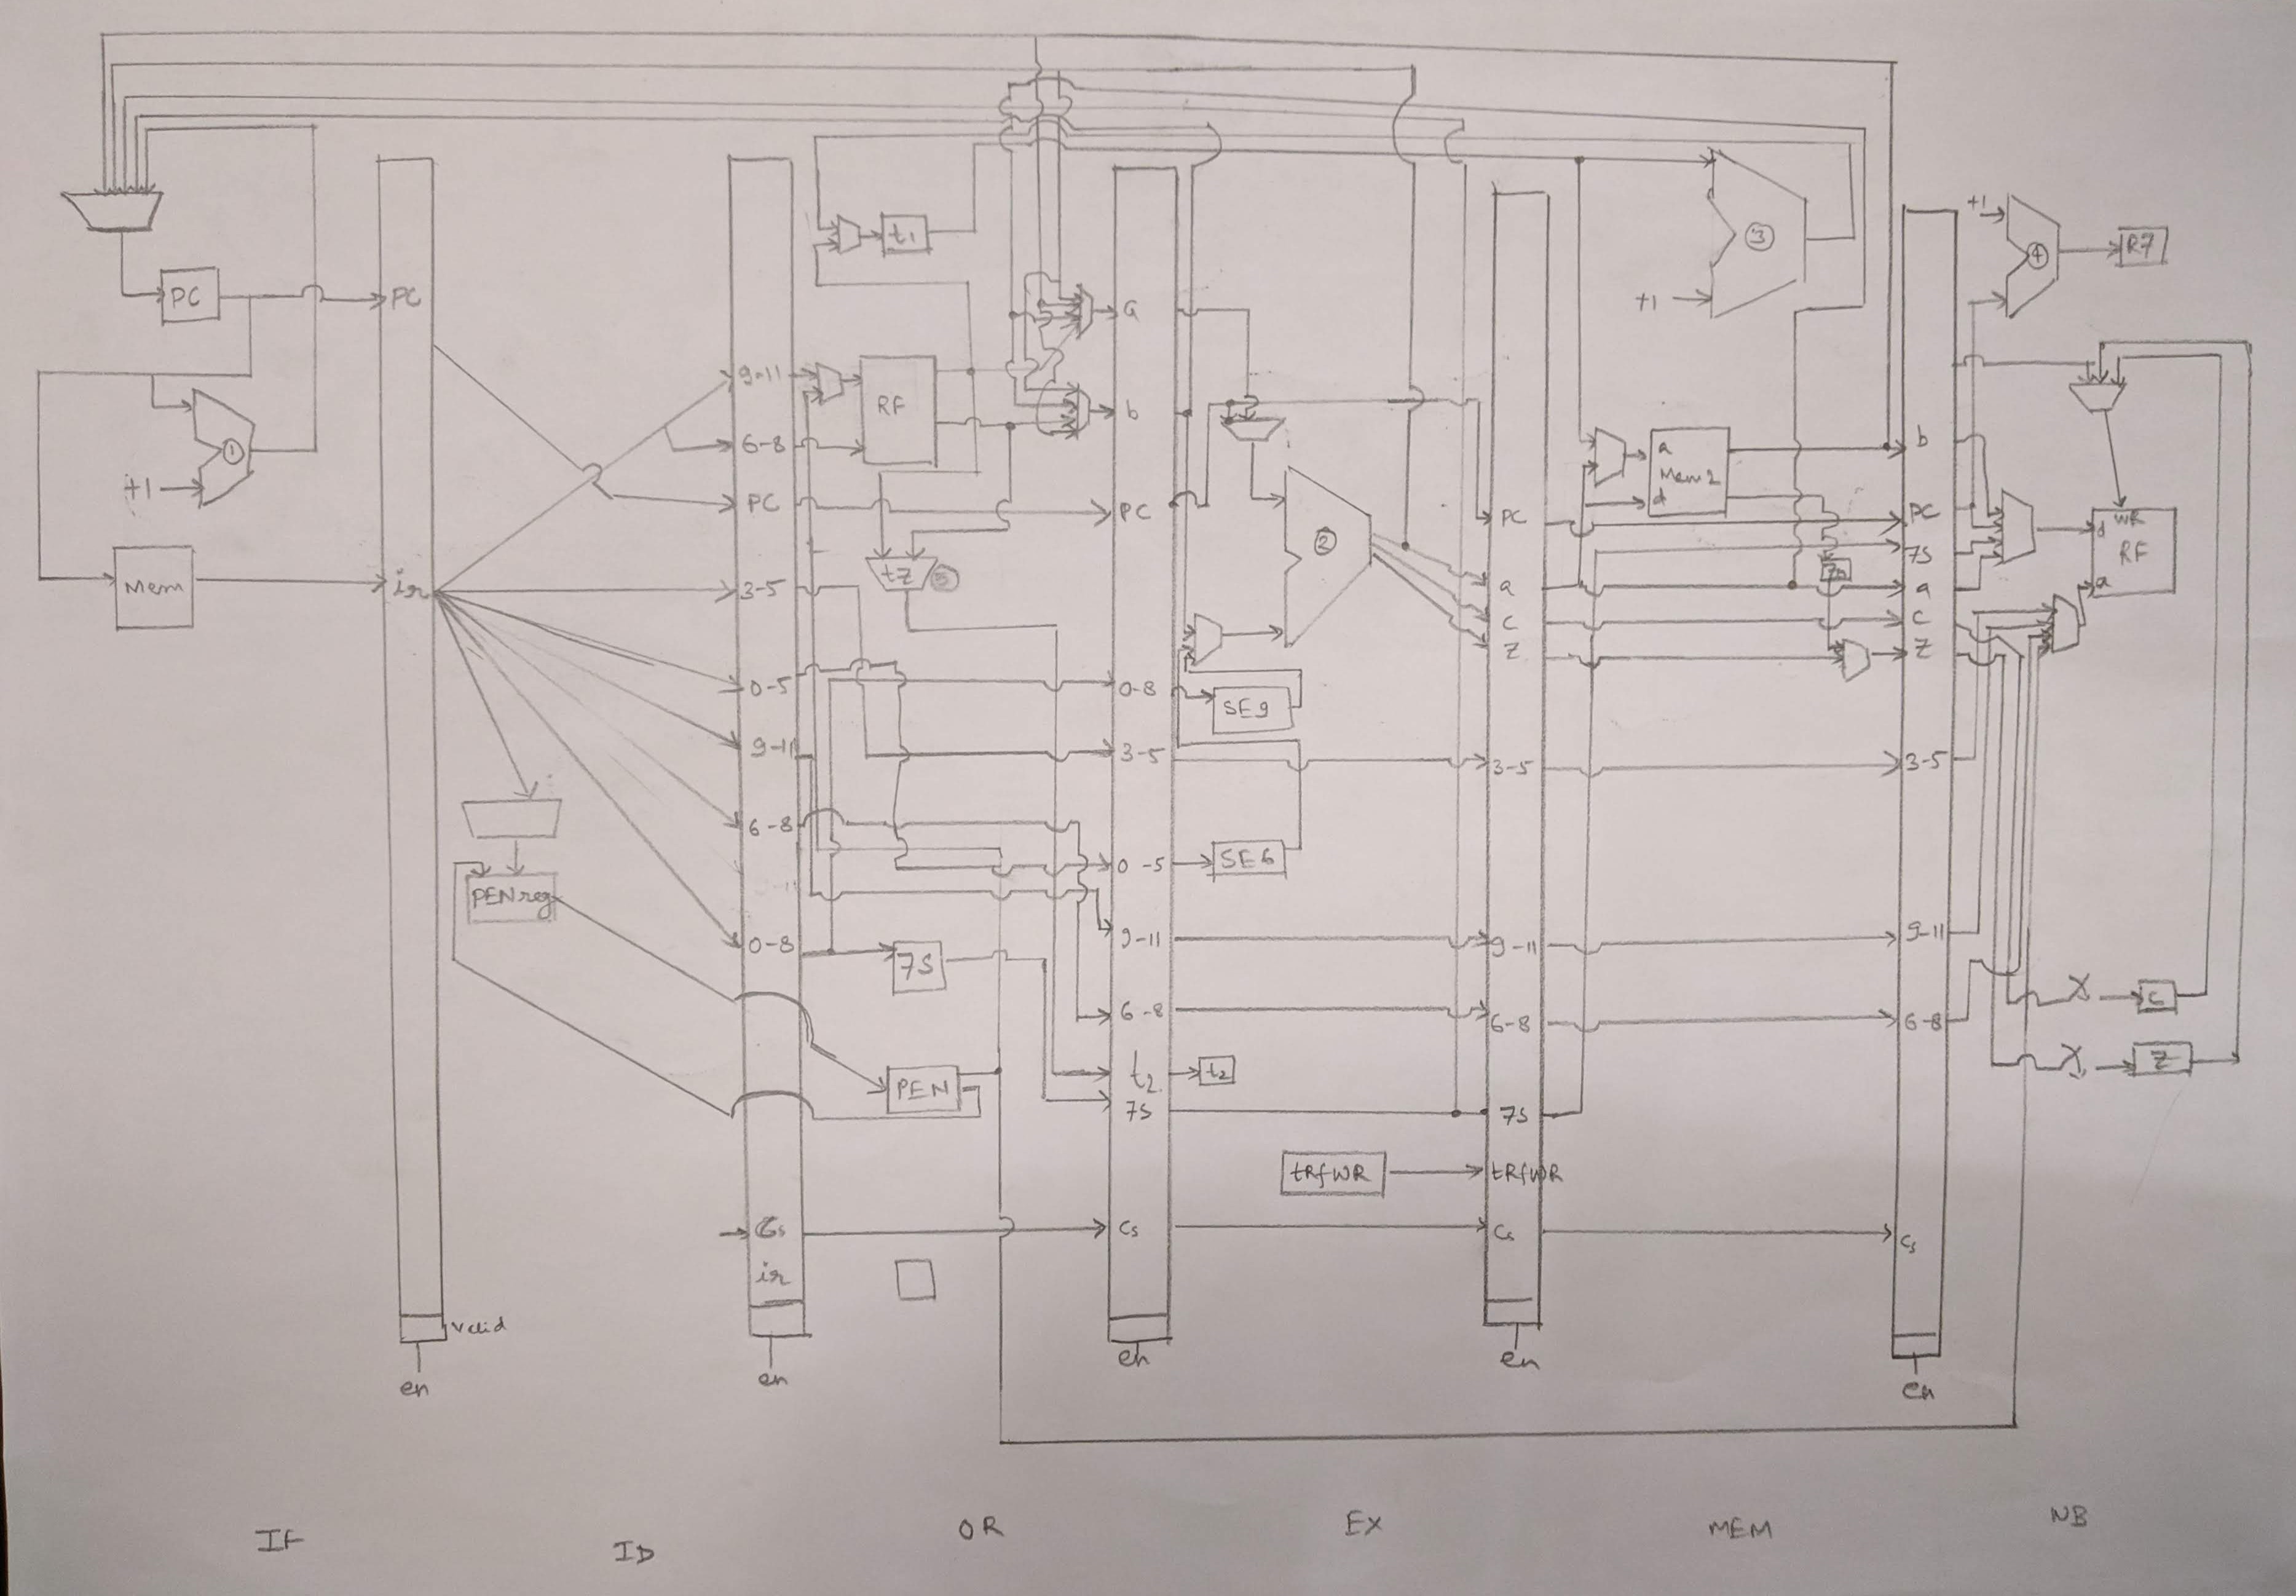 PC
+1
1
Mem
PC
ir
valid
en
PENreg
9-11
6-8
PC
3-5
0-5
9-11
6-8
0-8
Cs
ir
en
t1
RF
tz
5
7S
PEN
a
b
PC
0-8
3-5
0-5
9-11
6-8
t2
7S
Cs
en
2
SE9
SE6
t2
tRfWR
PC
a
c
Z
3-5
9-11
6-8
7S
tRfWR
Cs
en
3
+1
a
Mem2
d
b
PC
7S
a
c
Z
3-5
9-11
6-8
Cs
en
+1
4
R7
WR
d
RF
a
C
Z
IF
ID
OR
EX
MEM
WB